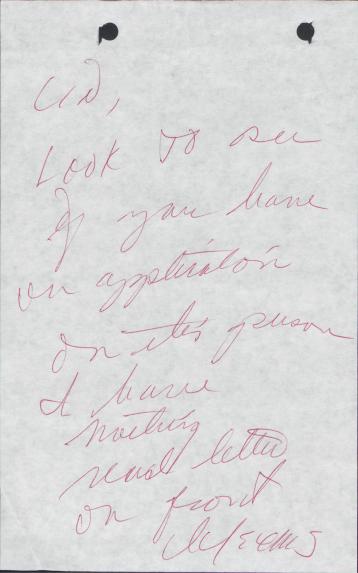 Look to see
If you have
an application
on this person
I have
nothing
read letter
on front